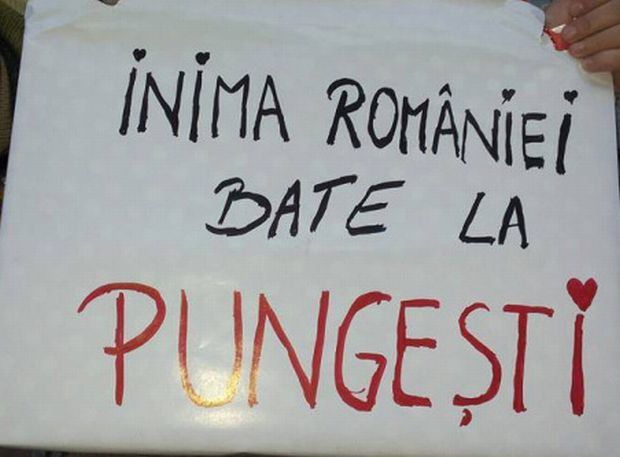 INIMA ROMÂNIEI
BATE LA
PUNGEȘTI